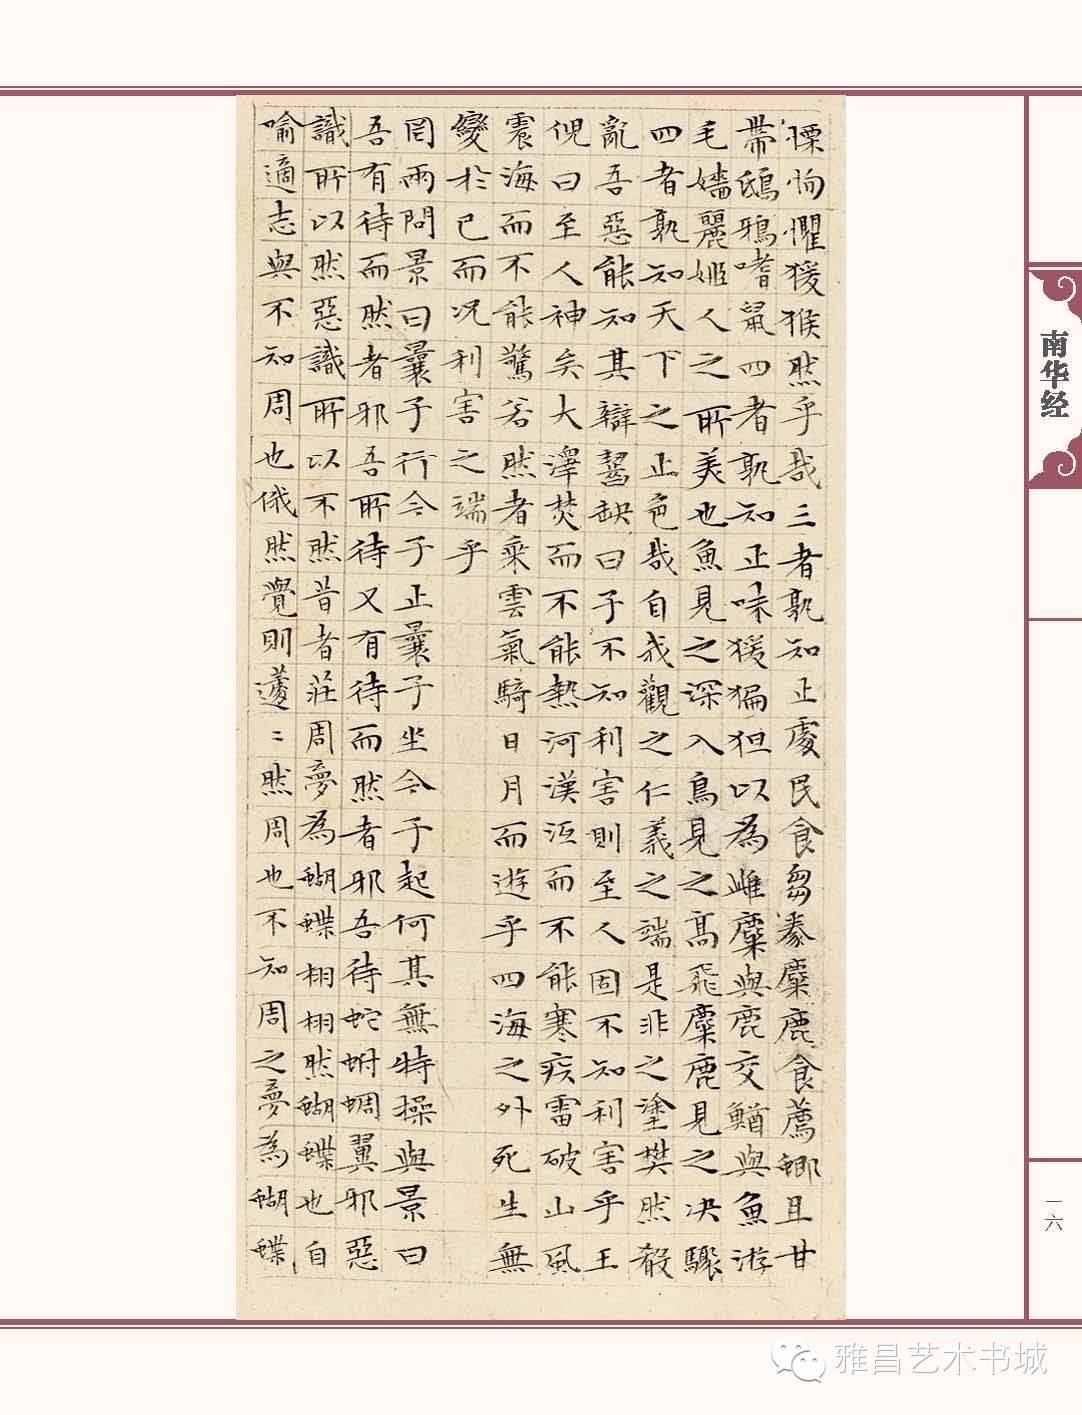 慄恂懼猨猴然乎哉三者孰知正處民食芻豢麋鹿食薦蝍且甘
帶鴟鴉嗜鼠四者孰知正味猨猵狙以為雌麋與鹿交鰌與魚游
毛嬙麗姬人之所美也魚見之深入鳥見之高飛麋鹿見之决驟
四者孰知天下之正色哉自我觀之仁義之端是非之塗樊然殽
亂吾惡能知其辯齧缺曰子不知利害則至人固不知利害乎王
倪曰至人神矣大澤焚而不能熱河漢沍而不能寒疾雷破山風
震海而不能驚若然者乘雲氣騎日月而遊乎四海之外死生無
變於己而况利害之端乎
罔兩問景曰曩子行今子止曩子坐今子起何其無特操與景曰
吾有待而然者邪吾所待又有待而然者邪吾待蛇蚹蜩翼邪惡
識所以然惡識所以不然昔者莊周夢為蝴蝶栩栩然蝴蝶也自
喻適志與不知周也俄然覺則蘧〻然周也不知周之夢為蝴蝶
南华经
一六
雅昌艺术书城